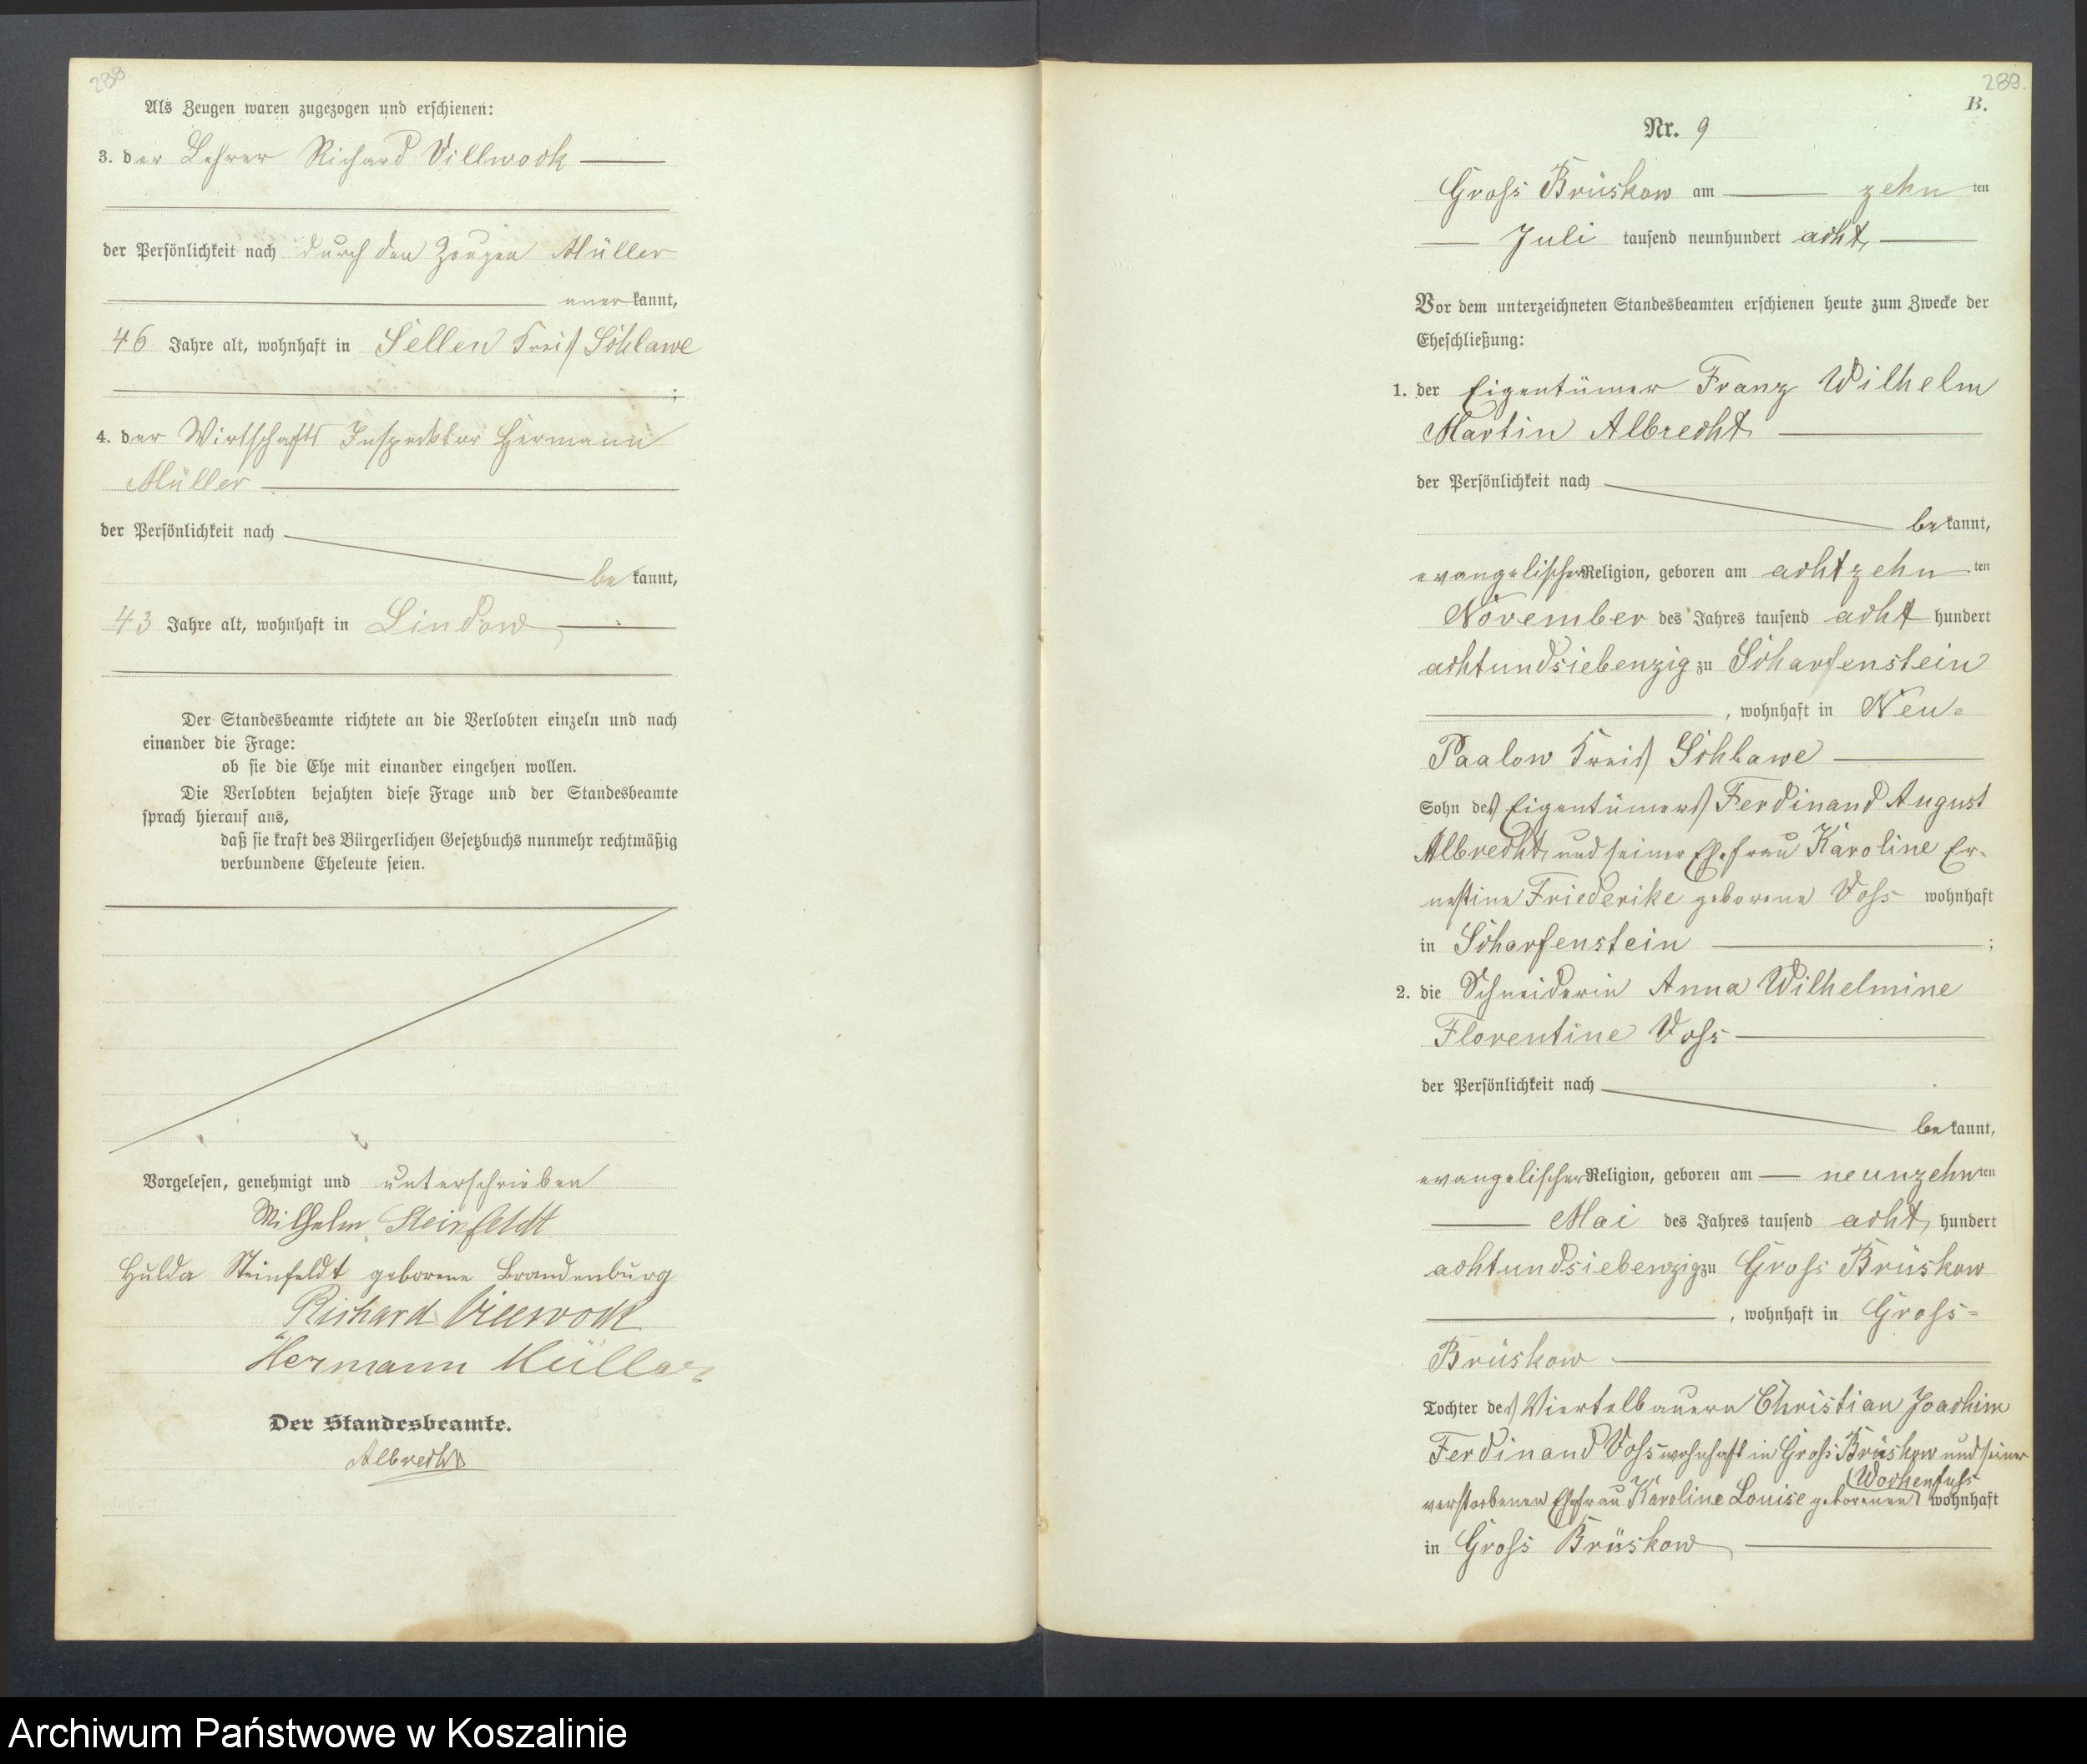 288
Als Zeugen waren zugezogen und erschienen:
3. der Lehrer Richard Villwock
der Persönlichkeit nach durch den Zeugen Müller
anerkannt,
46 Jahre alt, wohnhaft in Sellen Kreis Schlawe
;
4. der Wirtschafts Inspektor Hermann
Müller
der Persönlichkeit nach
bekannt,
43 Jahre alt, wohnhaft in Lindow
Der Standesbeamte richtete an die Verlobten einzeln und nach
einander die Frage:
ob sie die Ehe mit einander eingehen wollen.
Die Verlobten bejahten diese Frage und der Standesbeamte
sprach hierauf aus,
daß sie kraft des Bürgerlichen Gesetzbuchs nunmehr rechtmäßig
verbundene Eheleute seien.
Vorgelesen, genehmigt und unterschrieben
Wilhelm Steinfeldt
Hulda Steinfeldt geborene Brandenburg
Richard Villwock
Hermann Müller
Der Standesbeamte.
Albrecht
289.
B.
Nr. 9
Gross Brüskow am zehnten
Juli tausend neunhundert acht
Vor dem unterzeichneten Standesbeamten erschienen heute zum Zwecke der
Eheschließung:
1. der Eigentümer Franz Wilhelm
Martin Albrecht
der Persönlichkeit nach
bekannt,
evangelischer Religion, geboren am achtzehnten
November des Jahres tausend acht hundert
achtundsiebenzig zu Scharfenstein
, wohnhaft in Neu-
Paalow Kreis Schlawe
Sohn des Eigentümers Ferdinand August
Albrecht und seiner Ehefrau Karoline Er-
nestine Friederike geborene Voss wohnhaft
in Scharfenstein ;
2. die Schneiderin Anna Wilhelmine
Florentine Voss
der Persönlichkeit nach
bekannt,
evangelischer Religion, geboren am neunzehnten
Mai des Jahres tausend acht hundert
achtundsiebenzig zu Gross Brüskow
, wohnhaft in Gross-
Brüskow
Tochter des Viertelbauern Christian Joachim
Ferdinand Voss wohnhaft in Gross Brüskow und seiner
Wochenfuss
verstorbenen Ehefrau Karoline Louise geborenen wohnhaft
in Gross Brüskow
Archiwum Państwowe w Koszalinie